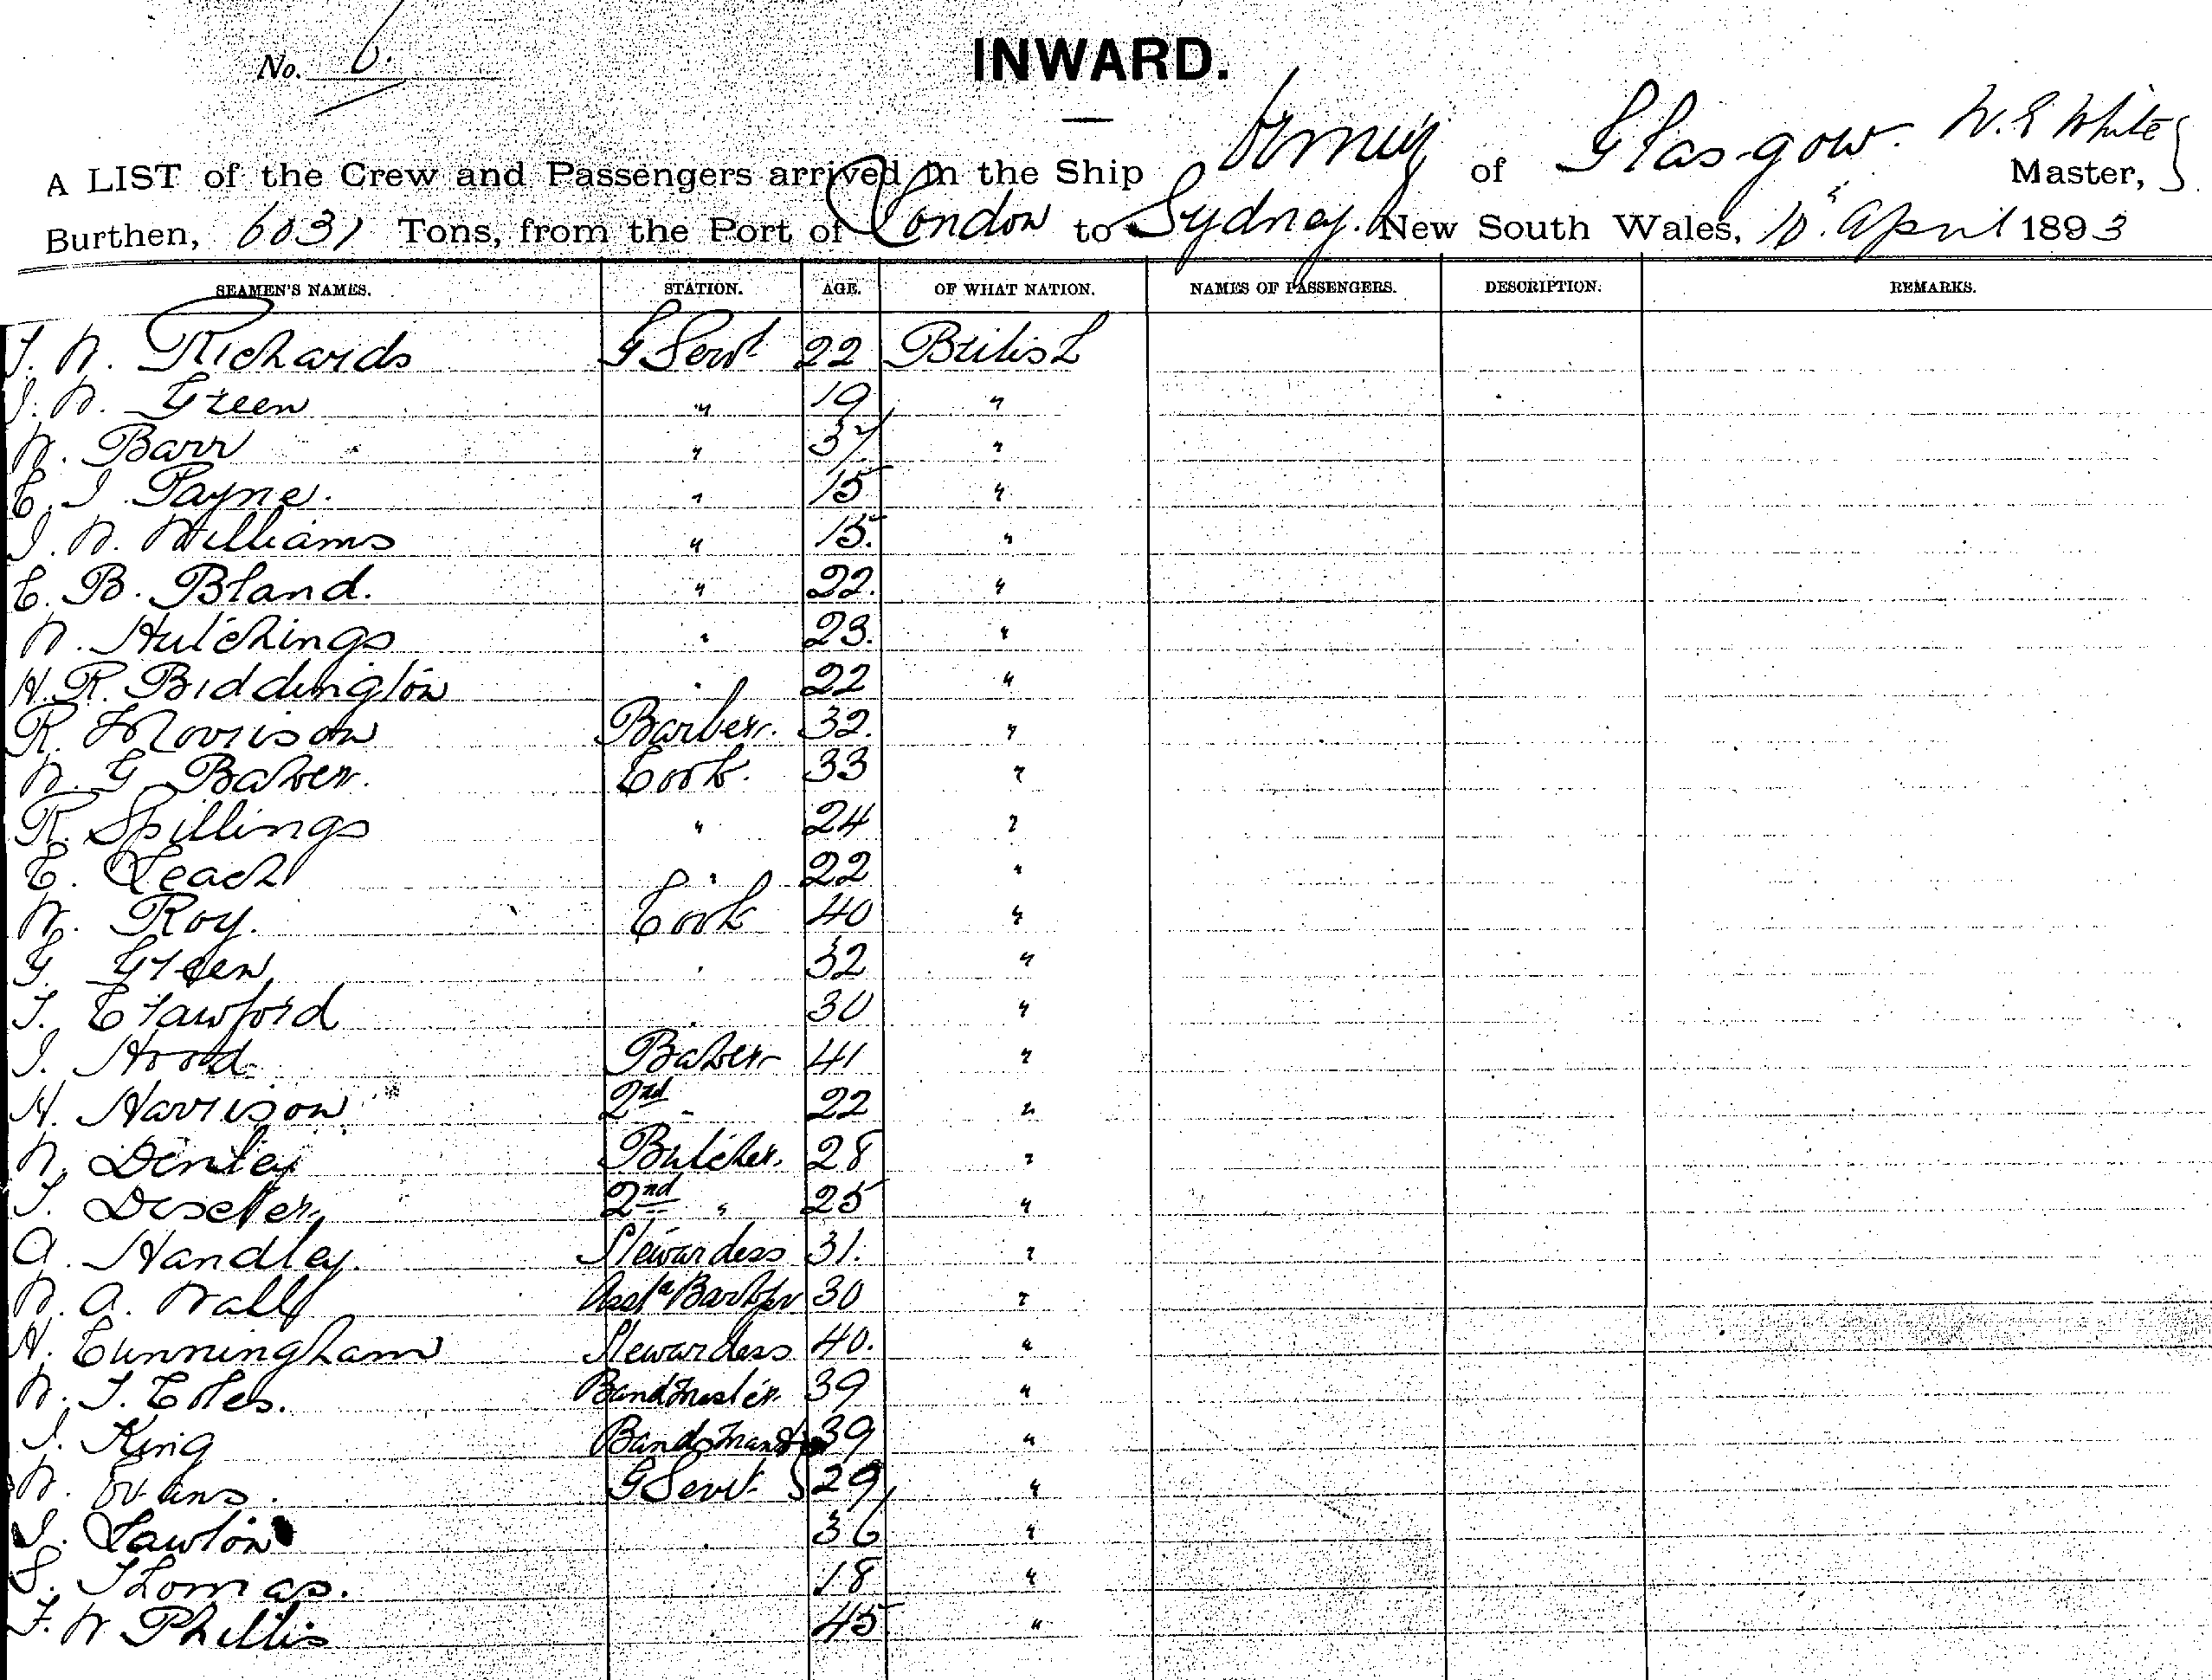 No. 6.
INWARD.
A LIST of the Crew and Passengers arrived in the Ship Ormuz of Glasgow. W. E White Master,
Burthen, 6031 Tons, from the Port of London to Sydney. New South Wales, 10 April 1893
SEAMEN'S NAMES. STATION. AGE. OF WHAT NATION. NAMES OF PASSENGERS. DESCRIPTION. REMARKS.
J. W. Richards G Servt 22 British
J. W. Green " 19 "
W. Barr " 37 "
C. J Payne. " 15 "
J. W. Williams " 15. "
C. B. Bland. " 22. "
W. Hutchings " 23. "
H. R. Biddington " 22 "
R. Morrison Barber. 32. "
W. G Baker. Cook. 33 "
R. Spillings " 24 "
C. Leach " 22 "
W. Roy. Cook 40 "
G Green " 32 "
J. Crawford " 30 "
J. Hood Baker 41 "
H. Harrison 2nd " 22 "
W. Dinley Butcher. 28 "
J. 2nd " 25 "
A. Handley. Stewardess 31. "
W. A. Wall Asst Barber 30 "
H. Cunningham Stewardess 40. "
W. J. Coles. Bandmaster 39 "
J. King Bandsman 39 "
W. Evans. G Servt 29 "
J. Lawton " 36 "
S. Thomas. " 18 "
F. W Phillis " 45 "